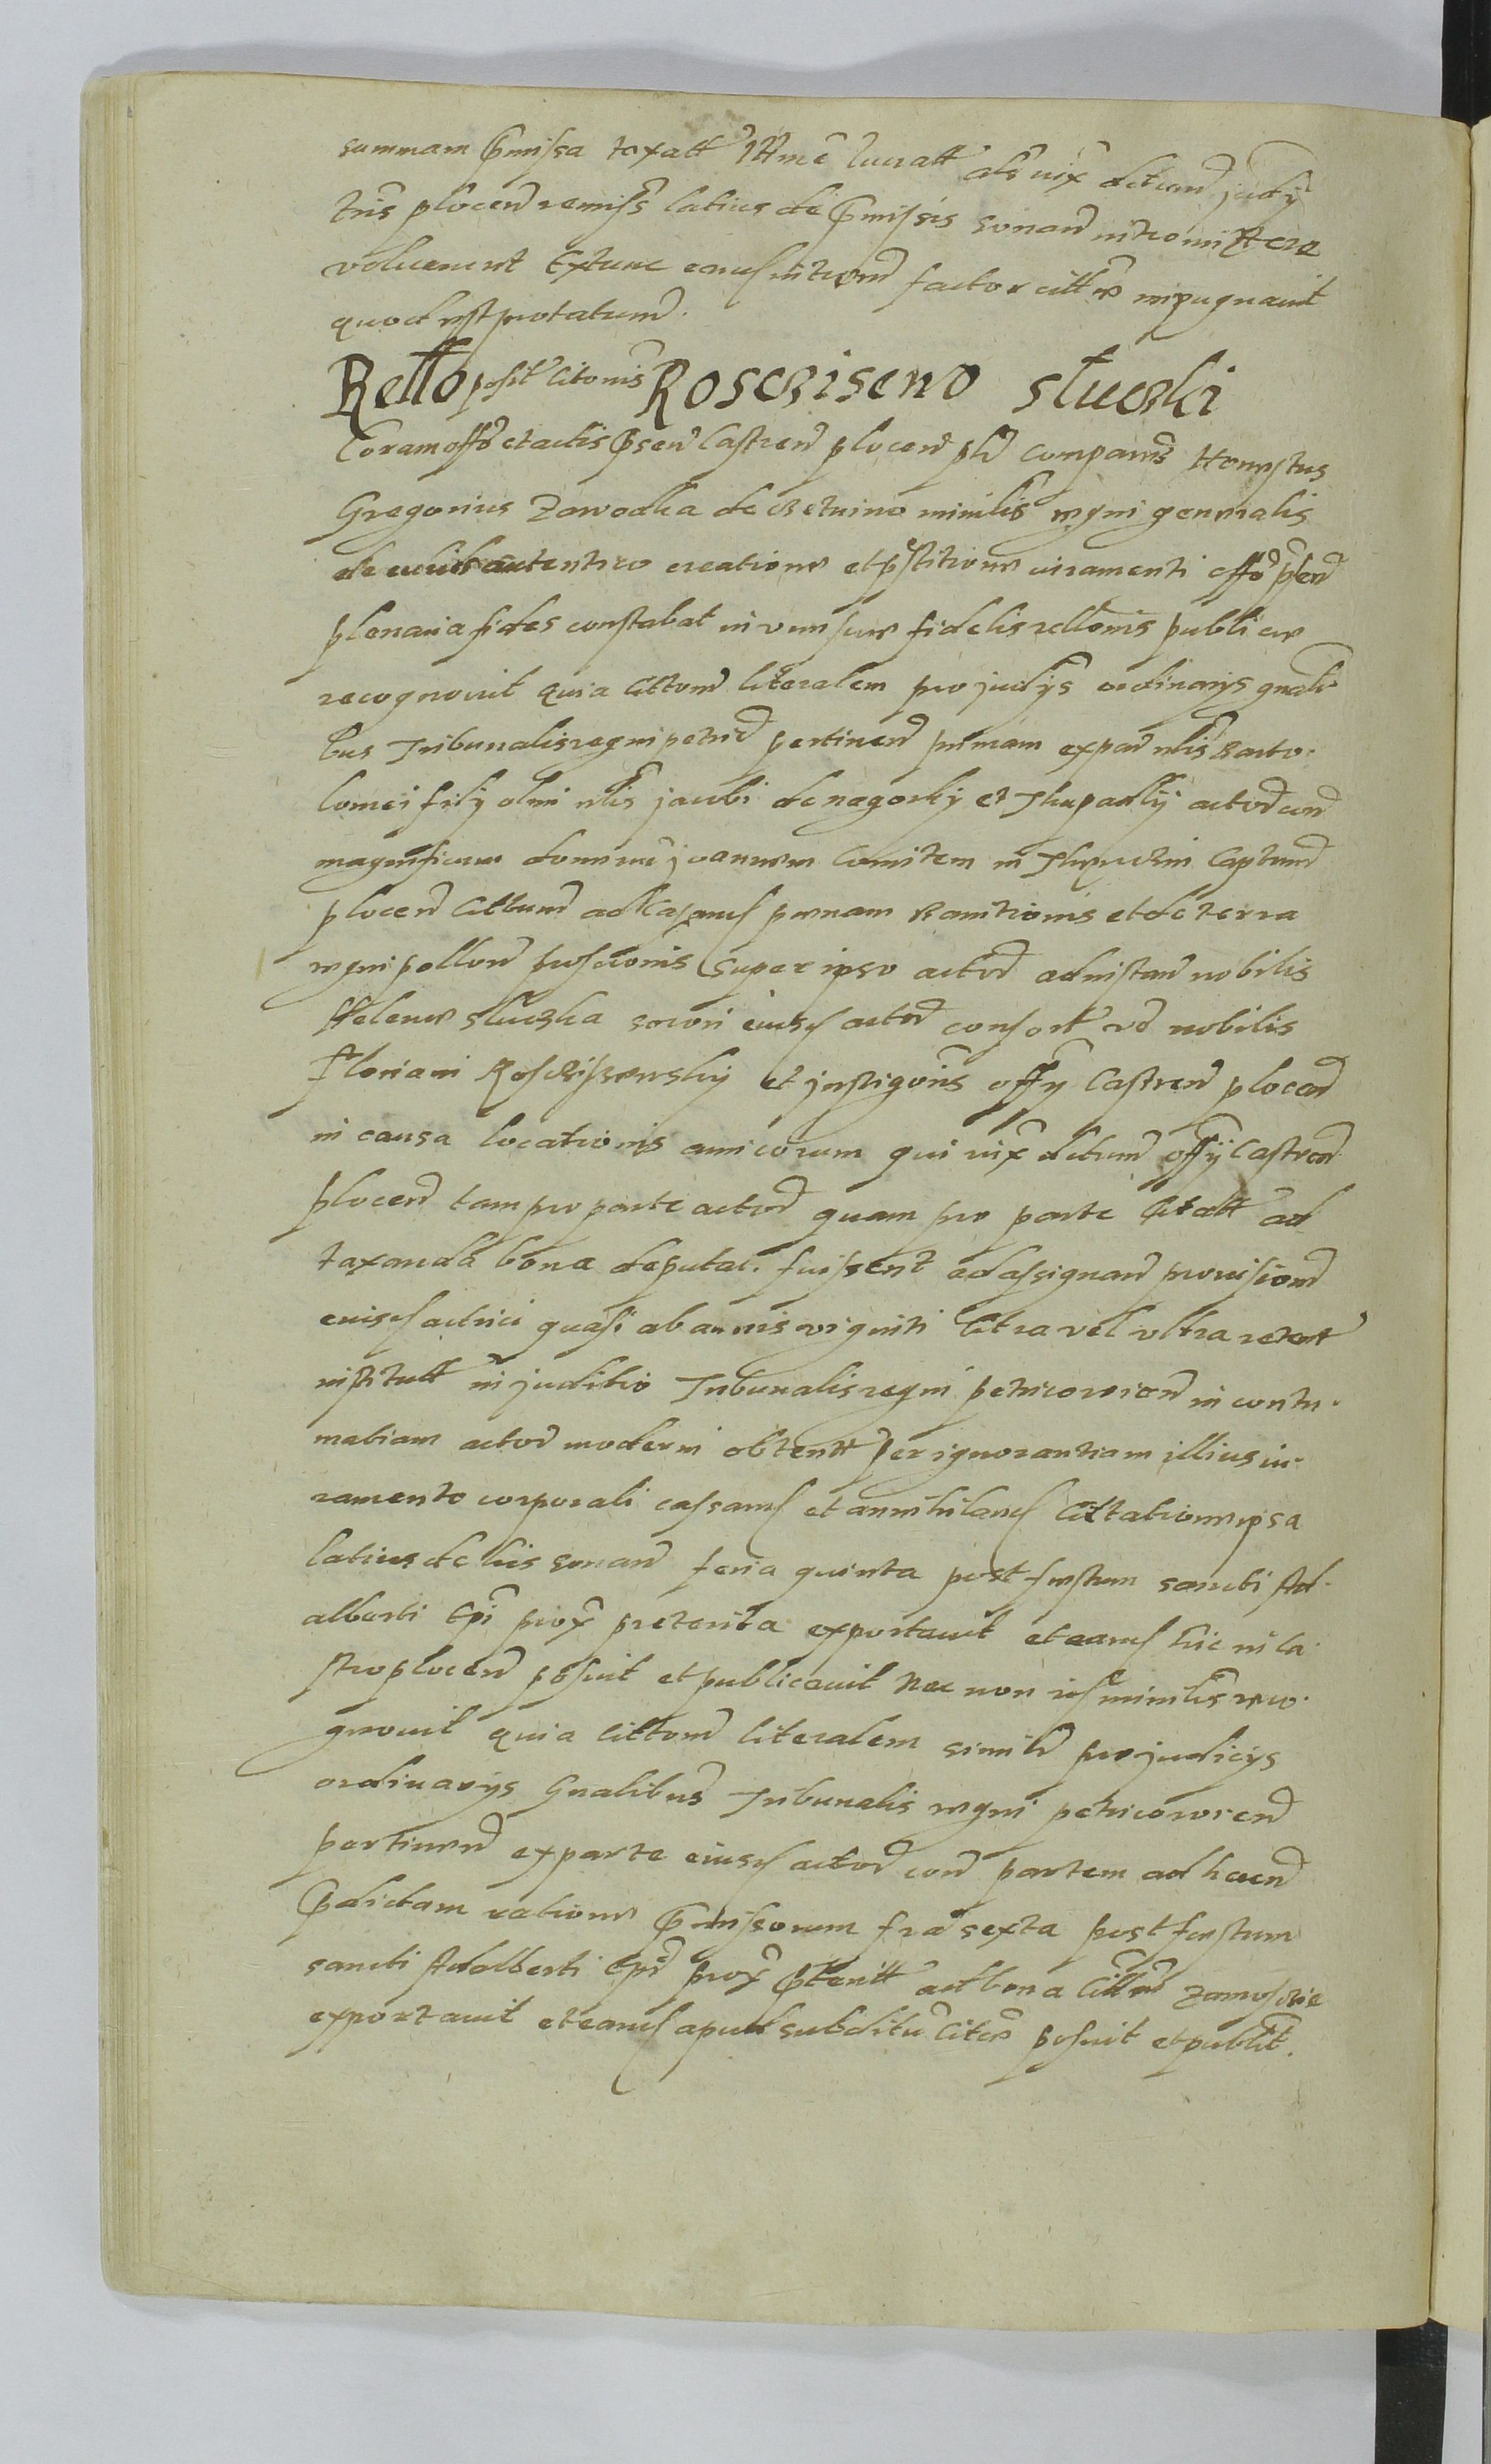 summam p̃missa taxatt lucratt als iux decretum judy
plocen̄ remiss latius de p̃missis sonan̄ intromittere
voluerunt Extunc eand intromi factor citt impugnauit
quod est protatum.
Rello posit̄ citonis Rosciseno slucski
Coram offo et actis p̃sen Castren̄ plocen̄ plr comparens Honestus
Gregorius Zawodka de minilis regni generalis
de cuius autentico creationis et p̃stitionis iuramenti offo p̃sen
plenaria fides constabat in vim sue fidelis rellonis publice
recognouit quia cittom literalem pro judys ordinarys gnali
bus Tribunalis regni petric pertinen primam ex par nlis Barto.
lomei fily olim nlis jacobi de nagorky et Slupadly actor con
magnificum dominum joannem Comitem in capteum
plocen̄ Cittum ad penam Banitionis et de terra
regni pollon̄ proscrionis super ipso actor ad instan nobilis
Helene slucska sorori eiusd actor consort nobilis
Floriani et instigoris offy Castren̄ plocen̄
in causa locationis amicorum qui iux decretum offy Castren̄
plocen̄ tam pro parte actor quam pro parte Citatt ad
taxanda bona deputat. fuissent ad assignan prouisiom
eiusd actrici quasi ab annis viginti Citra vel vltra retent
institutt in juditio Tribunalis regni petricouien̄ in contu.
matiam actor moderni obtentt per ignorantiam illius iu.
ramento corporali cassand et annihiland Cittatione ipsa
latius de his sonan̄ feria quinta post festum sancti Ad.
alberti Epi prox preterita exportauit et eand hic in Ca.
stro plocen̄ posuit et publicauit Nec non id minilis reco.
gnouit quia cittom literalem similr pro judicys
ordinarys Gnalibus Tribunalis regni petricouien̄
pertinen̄ ex parte eiusd actor con partem ad haend
p̃dictam ratione p̃missorum fria sexta post festum
sancti Adalberti Epi prox p̃teritt ad bona Citti
exportauit et eand apud subditū Citi posuit et publit.